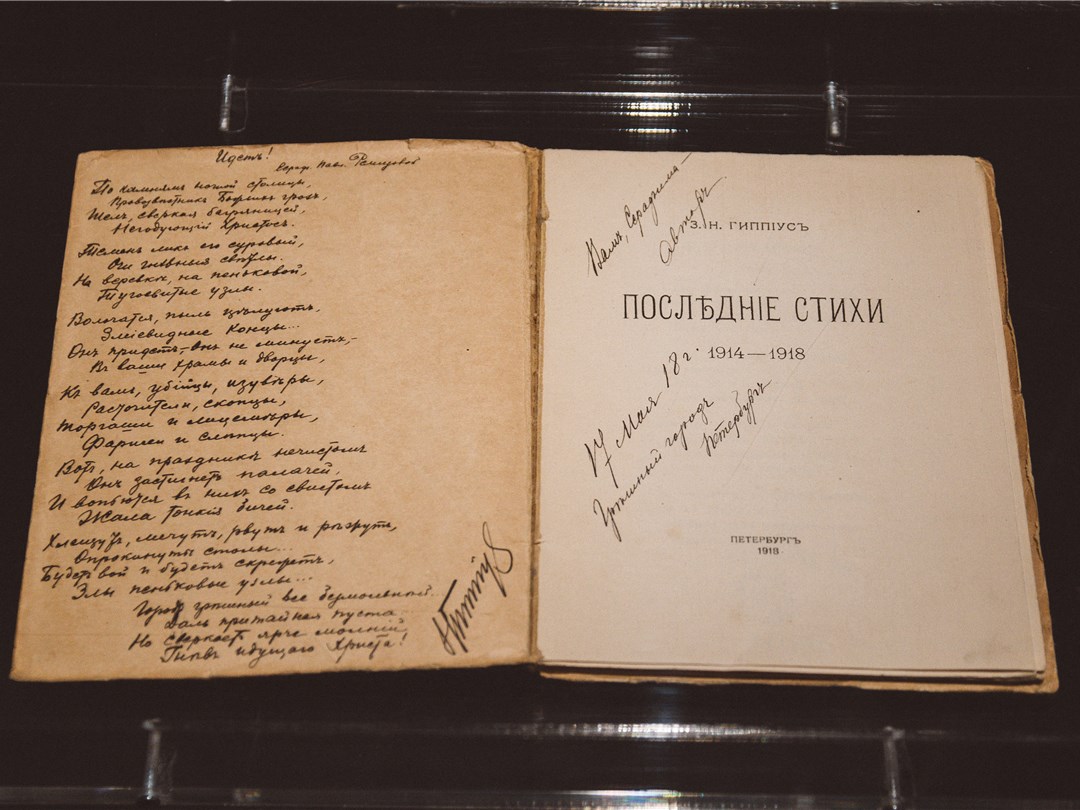 Идетъ!
Сераф. Павл. Ремизовой
По камнямъ ночной столицы,
Провозвѣстникъ Божьихъ грозъ,
Шелъ, сверкая багряницей,
Негодующій Христосъ.
Теменъ ликъ его суровый,
Очи гнѣвныя свѣтлы.
На веревкѣ, на пеньковой,
Туговитые узлы.
Волочатся, пыль цѣлуютъ,
Змѣевидные концы...
Онъ придетъ, – Онъ не минуетъ, –
Въ ваши храмы и дворцы,
Къ вамъ, убійцы, изувѣры,
Расточители, скопцы,
Торгаши и лицемѣры,
Фарисеи и слѣпцы.
Вотъ, на праздникѣ нечистомъ
Онъ застигнетъ палачей,
И вопьются въ нихъ со свистомъ
Жала тонкія бичей.
Хлещутъ, мечутъ, рвутъ и рѣжутъ,
Опрокинуты столы...
Будетъ вой и будетъ скрежетъ,
Злы пеньковые узлы...
Городъ грѣшный все безмолвнѣй..
Даль пуста.
Но сверкаетъ ярче молній
Гнѣвъ идущаго Христа!
Вамъ, Серафима –
Авторъ.
З. Н. ГИППІУСЪ
ПОСЛѢДНІЕ СТИХИ
1914—1918
17 Мая 18 г.
Грѣшный городъ
Петербургъ
ПЕТЕРБУРГЪ
1918